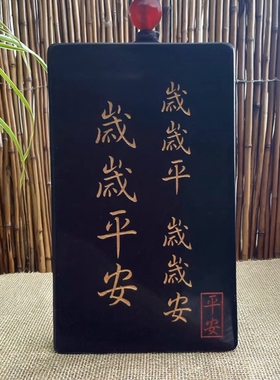 歲歲平 歲歲安
歲歲平安
平安